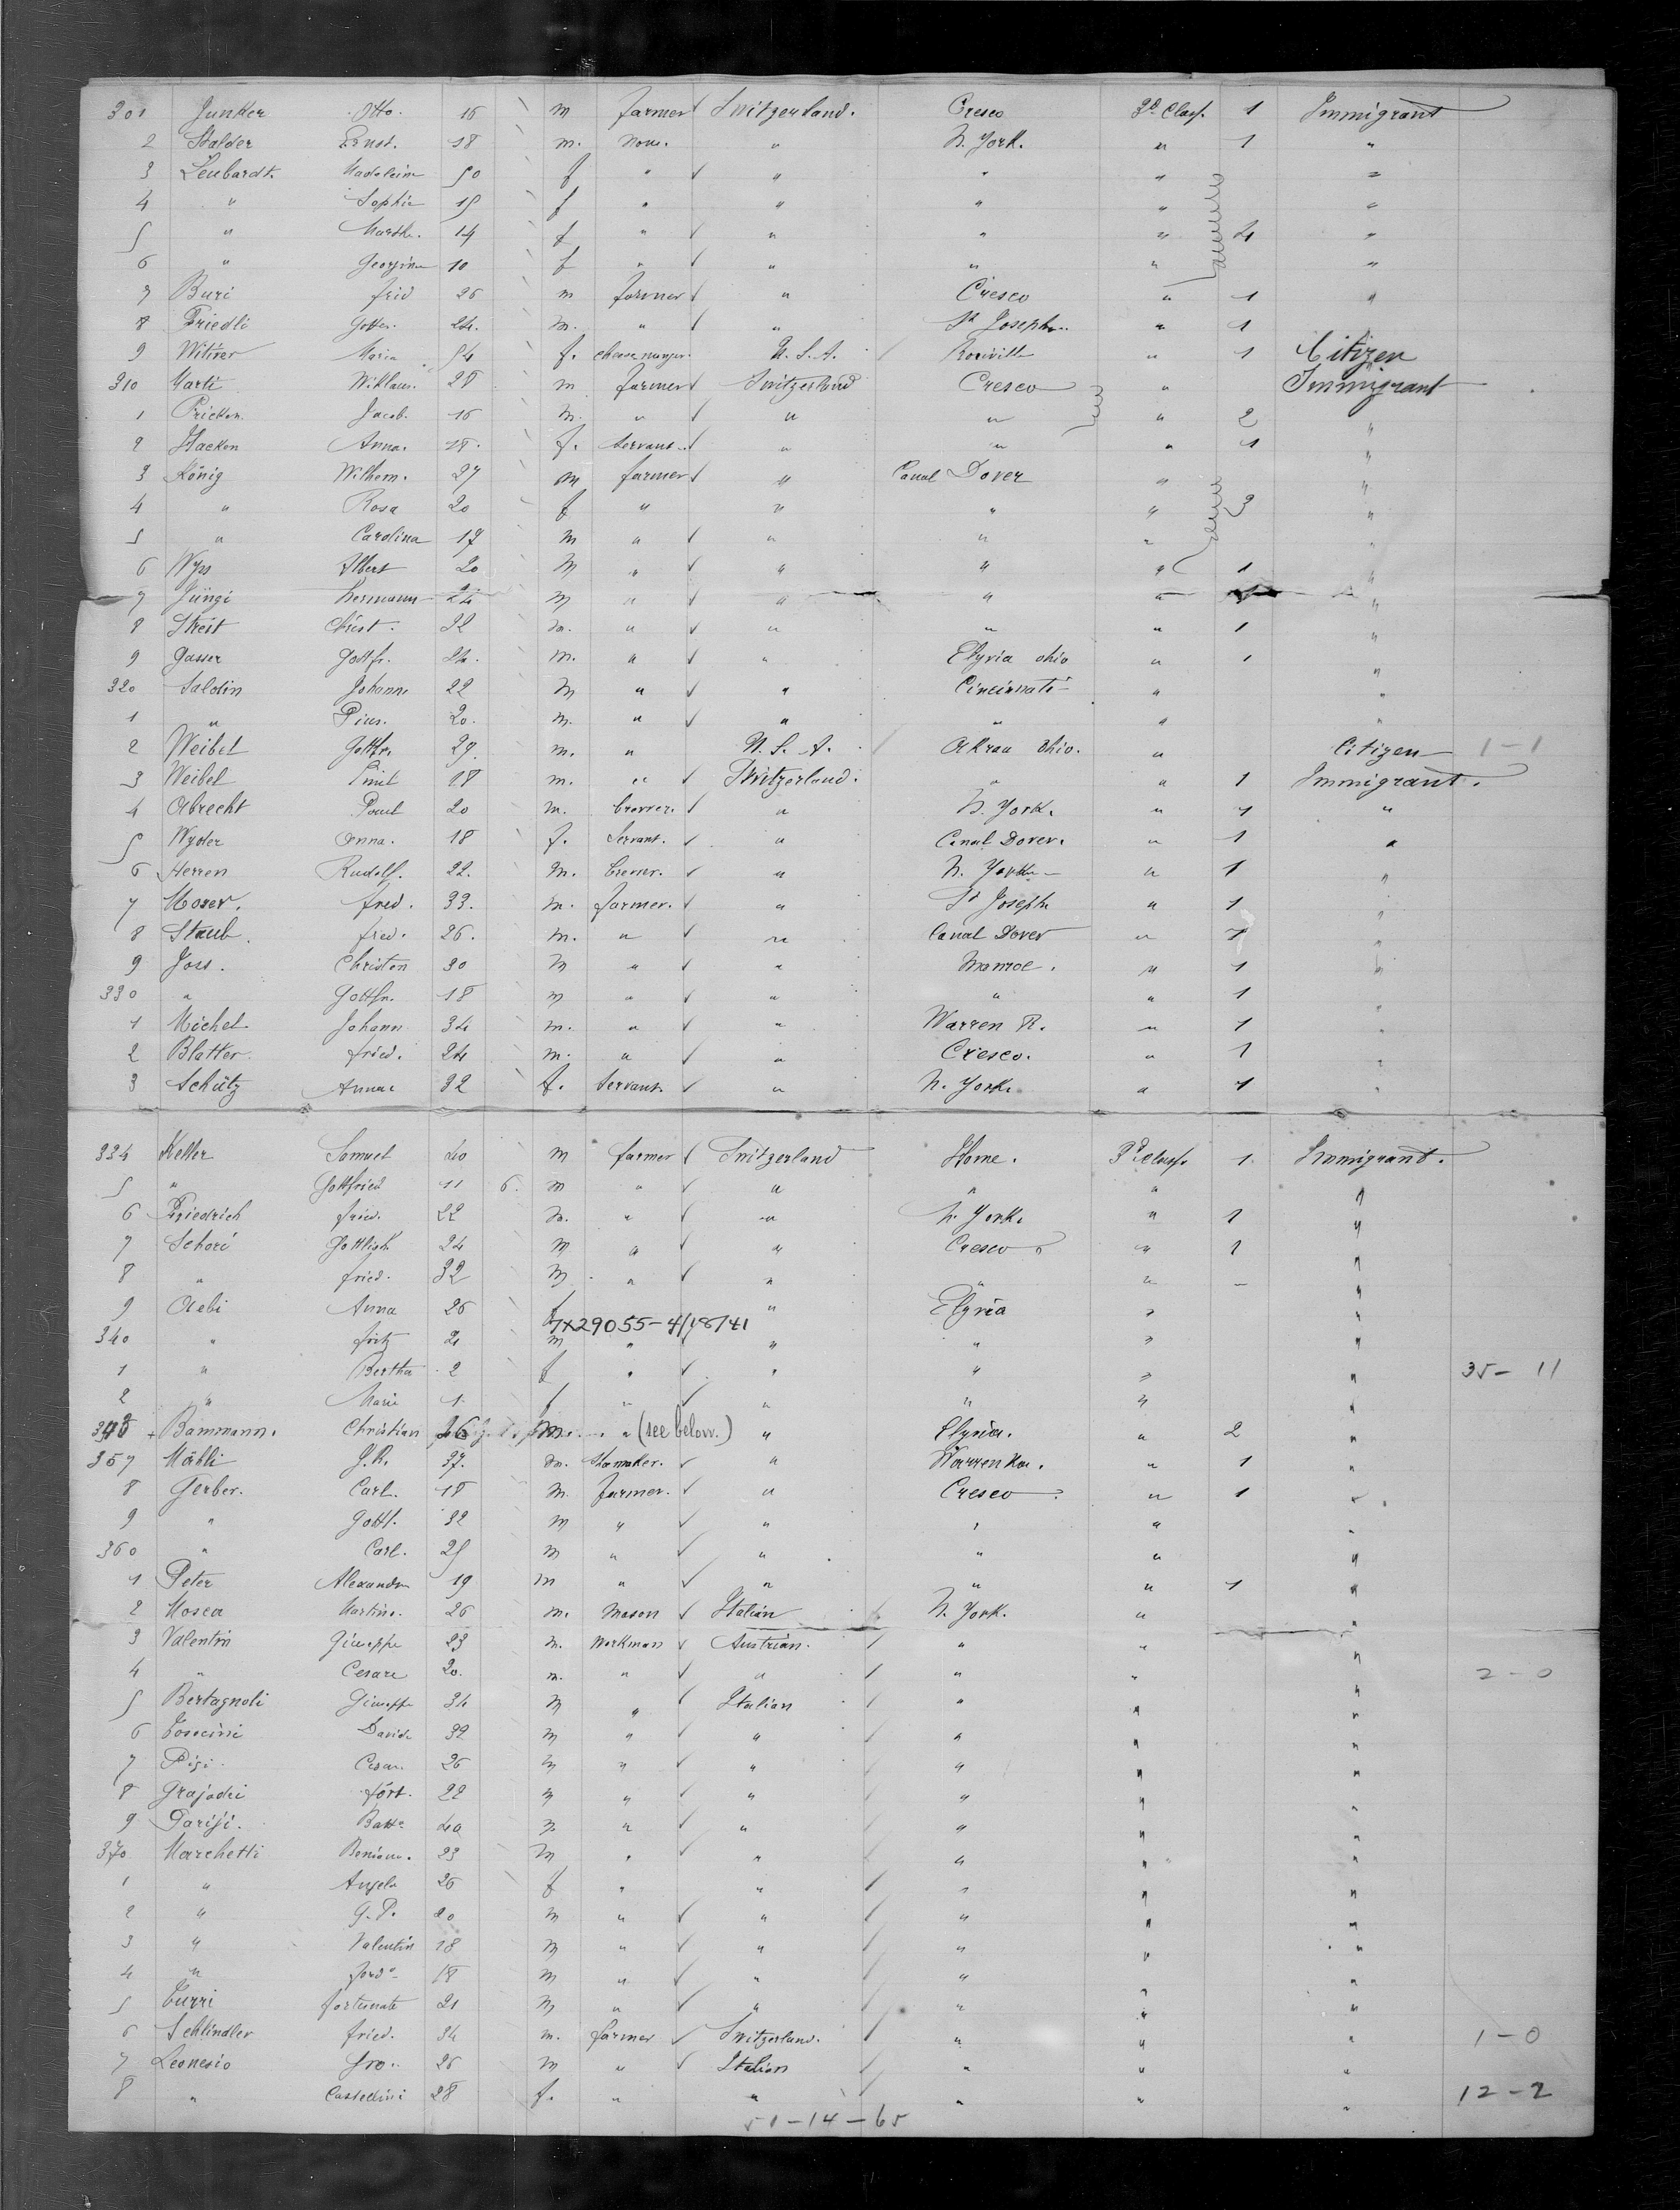 301 Junker Otto. 16 m farmer Switzerland. Cresco 3d Class. 1 Immigrant
2 Stalder Ernst. 18 m. None. " N. York. " 1 "
3 Leubardt. Madeleine 50 f " " " " "
4 " Sophie 15 f " " " " "
5 " Marth. 14 f " " " " 4 "
6 " Georgina 10 f " " " " "
7 Buri frid 26 m farmer " Cresco " 1 "
8 Friedli Gottr. 24. m. " " St Joseph. " 1
9 Witwer Maria 54 f. U. S. A. " 1 Citizen
310 Marti Niklaus. 28 m farmer Switzerland Cresco " Immigrant
1 Jacob. 16 m. " " " " 2 "
2 Hacken Anna. 18. f. Servant. " " " 1 "
3 König Wilhem. 27 m farmer " Canal Dover " "
4 " Rosa 20 f " " " " 3 "
5 " Carolina 17 m " " " " "
6 Wyss Albert 20 m " " " " 1 "
7 Jüngi Hermann 24 m " " " " 1 "
8 Streit Christ. 22 m. " " " " 1 "
9 Gasser Gottfr. 24. m. " " Elyria ohio " 1 "
320 Saladin Johann. 22 m " " Cincinnati " "
1 " Pius. 20. m. " " " " "
2 Weibel Gottfr. 29. m. " U. S. A. Akron Ohio. " Citizen 1-1
3 Weibel Emil 18 m. " Switzerland. " " 1 Immigrant.
4 Abrecht Paul 20 m. brewer. " N. York. " 1 "
5 Wyder Anna. 18 f. Servant. " Canal Dover. " 1 "
6 Herren Rudolf. 22. m. brewer. " N. York " 1 "
7 Moser. fred. 33. m. farmer. " St Joseph " 1 "
8 Staub. fried. 26. m. " " Canal Dover " 1 "
9 Joss. Christen 30 m " " Monroe. " 1 "
330 " Gottfr. 18 m " " " " 1
1 Michel. Johann 34 m. " " Warren R. " 1 "
2 Blatter. fried. 24 m. " " Cresco. " 1 "
3 Schütz Anna 32 f. Servant. " N. York. " 1 "
334 Keller Samuel 40 m farmer Switzerland Home. 3d Class. 1. Immigrant.
5 " Gottfried 11 6. m " " " " "
6 Friedrich fried. 22 m. " " N. York. " 1 "
7 Schori Gottlieb. 24 m " " Cresco " 1 "
8 " fried. 32 m. " " " " - "
9 Aebi Anna 26 f " Elyria " "
7x29055-4/18/41
340 " fritz 4 m " " " " "
1 " Bertha 2 f " " " " " 35-11
2 " Marie 1. f " " " "
343 + Bammann. Christian 26 m. " (see below.) " Elyria. " 2 "
357 Mähli J. R. 37. m. Shoemaker. " " 1 "
8 Gerber. Carl. 18 m. farmer. " Cresco. " 1 "
9 " Gottl. 32 m " " " " "
360 " Carl. 25 m " " " " "
1 Peter Alexander 19 m " " " " 1 "
2 Mosca Martino. 26 m. Mason Italian N. York. " "
3 Valentin Giuseppe 23 m. Workman Austrian. " " "
4 " Cesare 20. m. " " " " " 2-0
5 Bertagnoli Giuseppe 34 m " Italian " " "
6 Davide 32 m " " " " "
7 Pisi Cesar. 26 m " " " " "
8 Grajadei fort. 22 m " " " " "
9 Parisi. Batta 40 m " " " " "
370 Marchetti Beniam. 23 m " " " " "
1 " Angela 26 f " " " " "
2 " G. P. 20 m " " " " "
3 " Valentin 18 m " " " " "
4 " ferdo 18 m " " " " "
5 Turri fortunato 21 m " " " " "
6 Schlindler fried. 34 m. farmer Switzerland. " " " 1-0
7 Leonesio Gio. 26 m " Italian " " "
8 " 28 f. " " " " " 12-2
51-14-65